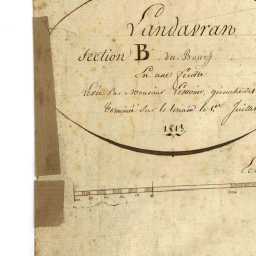 Vandavran
Section B du Bourg
En une feuille
Levée Par Monsieur
Terminé sur le terrain le 1er Juillet
1813